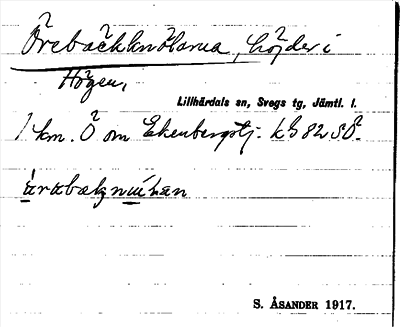 Örebäckknölarna, höjder i
Högen,
Lillhärdals sn, Svegs tg, Jämtl. l.
1 km. Ö om Ekenbergstj. kb 82 SÖ.
S. ÅSANDER 1917.